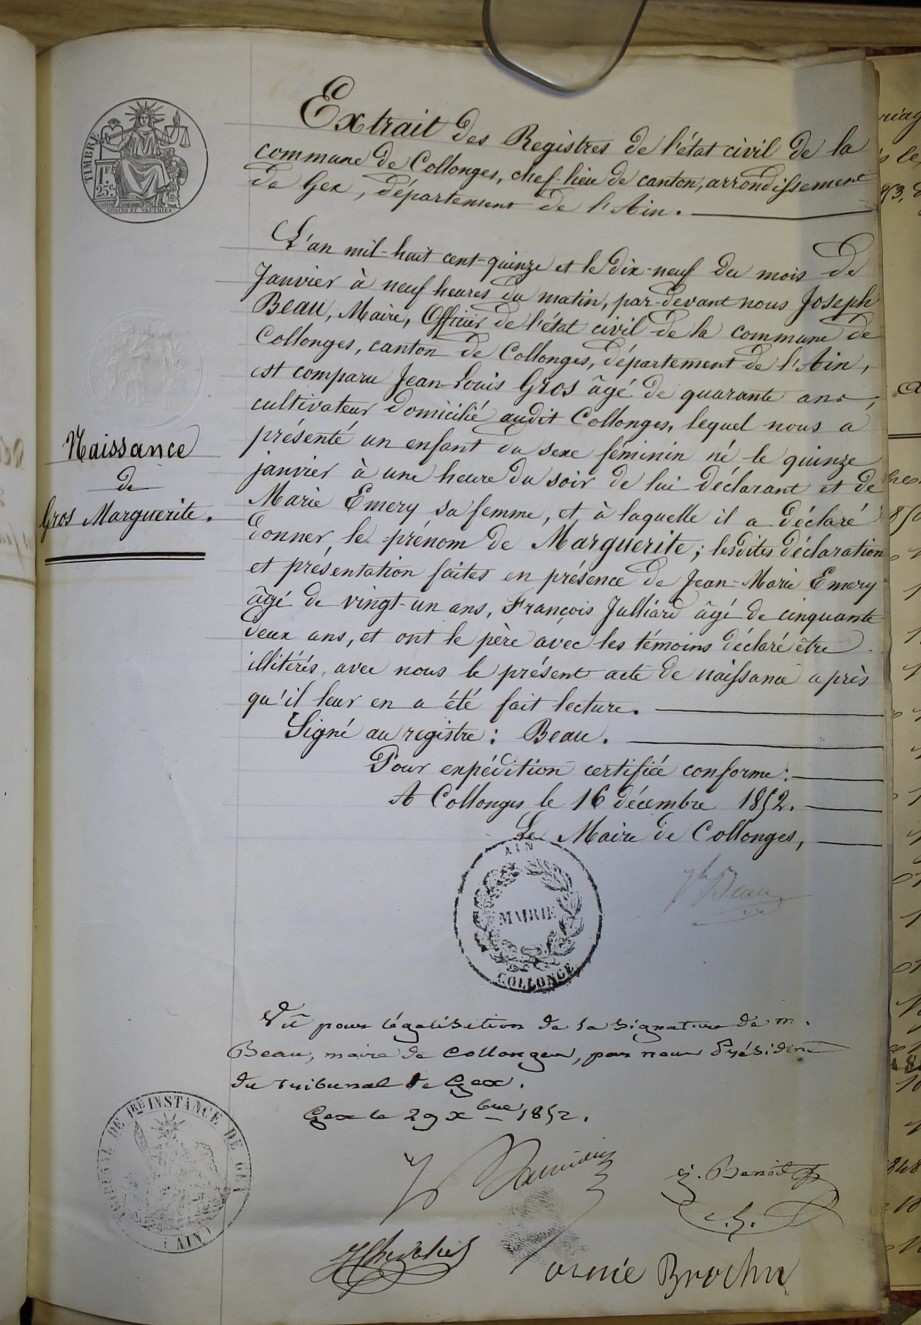 Extrait des Registres de l'état civil de la
commune de Collonges, chef lieu de canton, arrondissement
de Gex, département de l'Ain.
TIMBRE
L'an mil-huit cent-quinze et le dix-neuf du mois de
Janvier à neuf heures du matin, par-devant nous Joseph
Beau, Maire, Officier de l'état civil de la commune de
Collonges, canton de Collonges, département de l'Ain,
est comparu Jean-Louis Gros âgé de quarante ans,
cultivateur domicilié audit Collonges, lequel nous a
présenté un enfant du sexe féminin né le quinze
janvier à une heure du soir de lui déclarant et de
Marie Emery sa femme, et à laquelle il a déclaré
donner le prénom de Marguerite; lesdites déclaration
et présentation faites en présence de Jean-Marie Emery
âgé de vingt-un ans, François Julliard âgé de cinquante
deux ans, et ont le père avec les témoins déclaré être
illitérés, avec nous le présent acte de naissance après
qu'il leur en a été fait lecture.
Signé au registre: Beau.
Pour expédition certifiée conforme:
A Collonges le 16 décembre 1852.
Le Maire de Collonges,
Naissance
de
Gros Marguerite.
Jh Beau
AIN
MAIRIE
COLLONGE
Vu pour légalisation de la signature de m.
Beau, maire de Collonges, par nous Président
du tribunal de Gex.
Gex le 29 Xbre 1852.
TRIBUNAL DE 1RE INSTANCE DE GEX
(AIN)
j. Benoit
Brochu